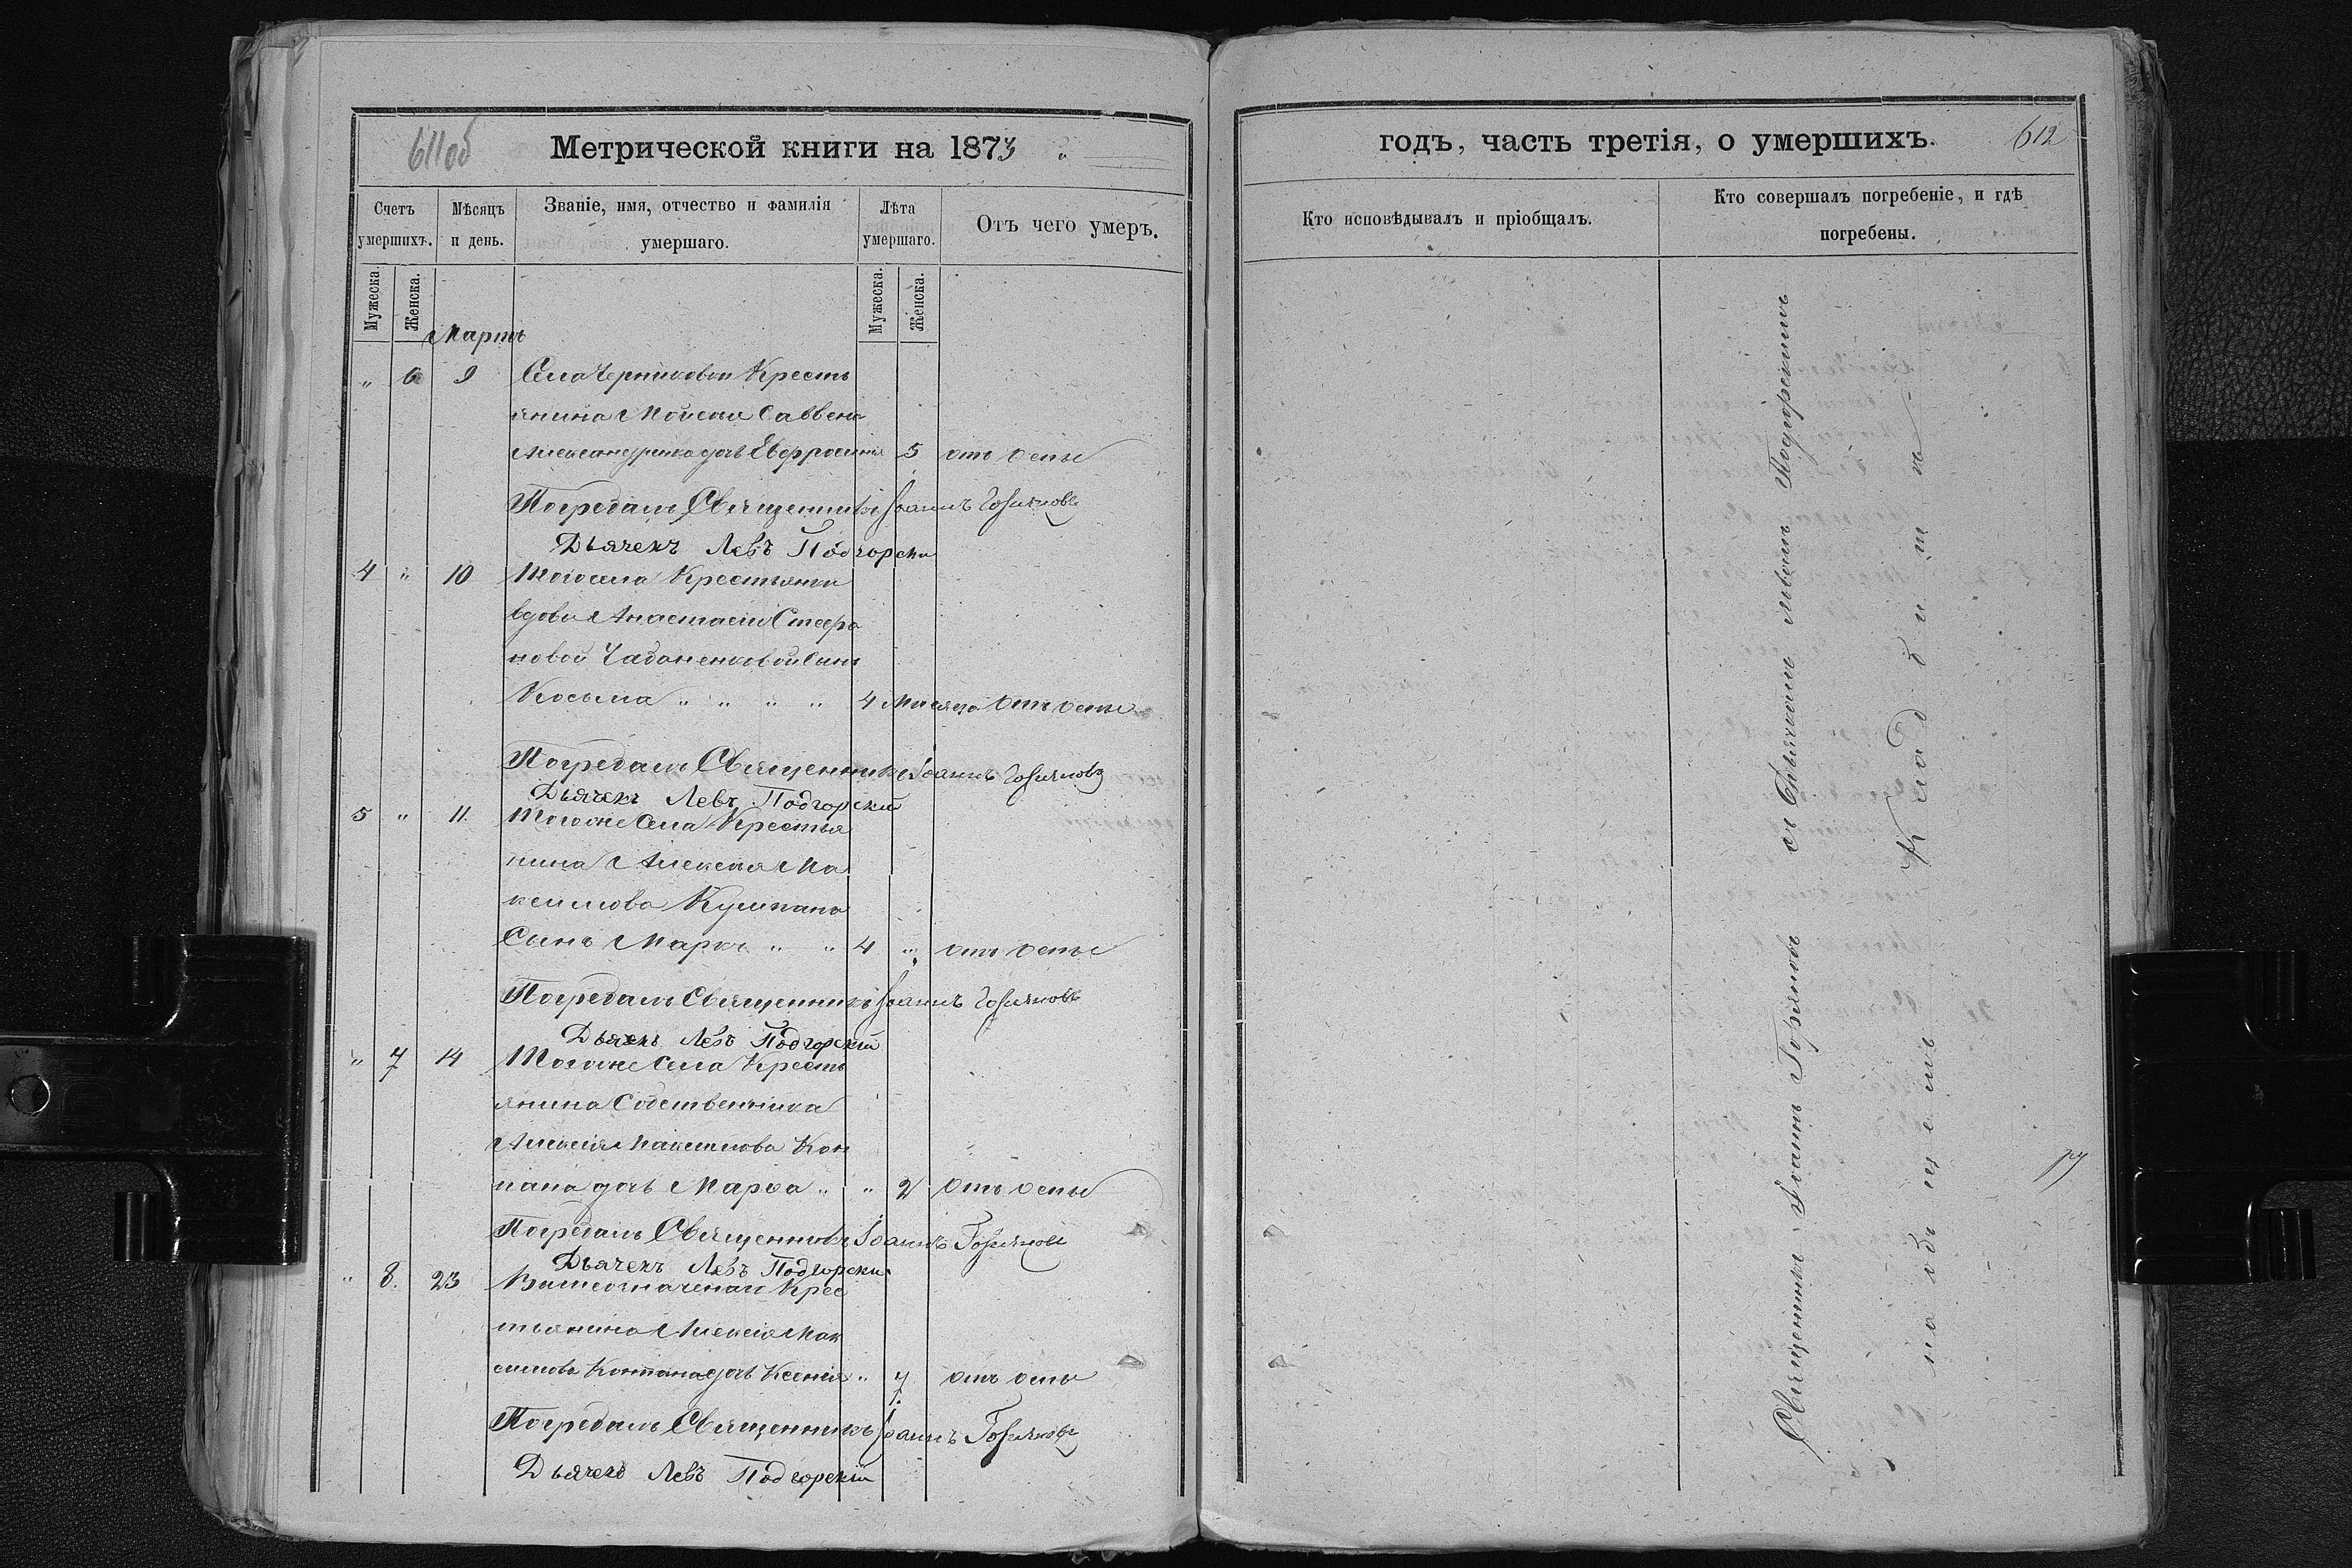 611об
Метрической книги на 1873 „
Счетъ умершихъ.
Мѣсяцъ и день.
Званіе, имя, отчество и фамилія умершаго.
Лѣта умершаго.
Отъ чего умеръ.
Мужеска.
Женска.
Мужеска.
Женска.
Мартъ
„ 6 9 Села Черниговки Кресть
янина Моисея Саввена
Александренка дочь Евфросинія 5 отъ оспы
Погребалъ Священникъ Іоаннъ Горяиновъ
Дьячекъ Левъ Подгорски
4 „ 10 Тогосела Крестьянки
вдовы Анастасіи Стефа
новой Чабаненковой сынъ
Косьма „ „ „ „ 4 Месяца Отъ оспы
Погребалъ Священникъ Іоаннъ Горяиновъ
Дьячекъ Левъ Подгорскій
5 „ 11. Тогоже Села Крестья
нина Алексея Ма
ксимова
Сынъ Маркъ „ „ 4 „ отъ оспы
Погребалъ Священникъ Іоаннъ Горяиновъ
Дьячекъ Левъ Подгорскій
„ 7 14 Тогоже Села Кресть
янина Собственника
Алексія Максимова Кон
пана дочь Марѳа „ „ 2 Отъ оспы
Погребалъ Священникъ Іоаннъ Горяиновъ
Дьячекъ Левъ Подгорски
„ 8. 23 Крес
тьянина Алексія Мак
симова Контана дочь Ксенія „ 7 отъ оспы
Погребалъ Священникъ Іоаннъ Горяиновъ
Дьячекъ Левъ Подгорскій
годъ, часть третія, о умершихъ.
612
Кто исповѣдывалъ и пріобщалъ.
Кто совершалъ погребеніе, и гдѣ погребены.
Священникъ Іоаннъ Горяиновъ съ Дьячкомъ Львомъ Подгорскимъ
на общемъ Кладбищѣ